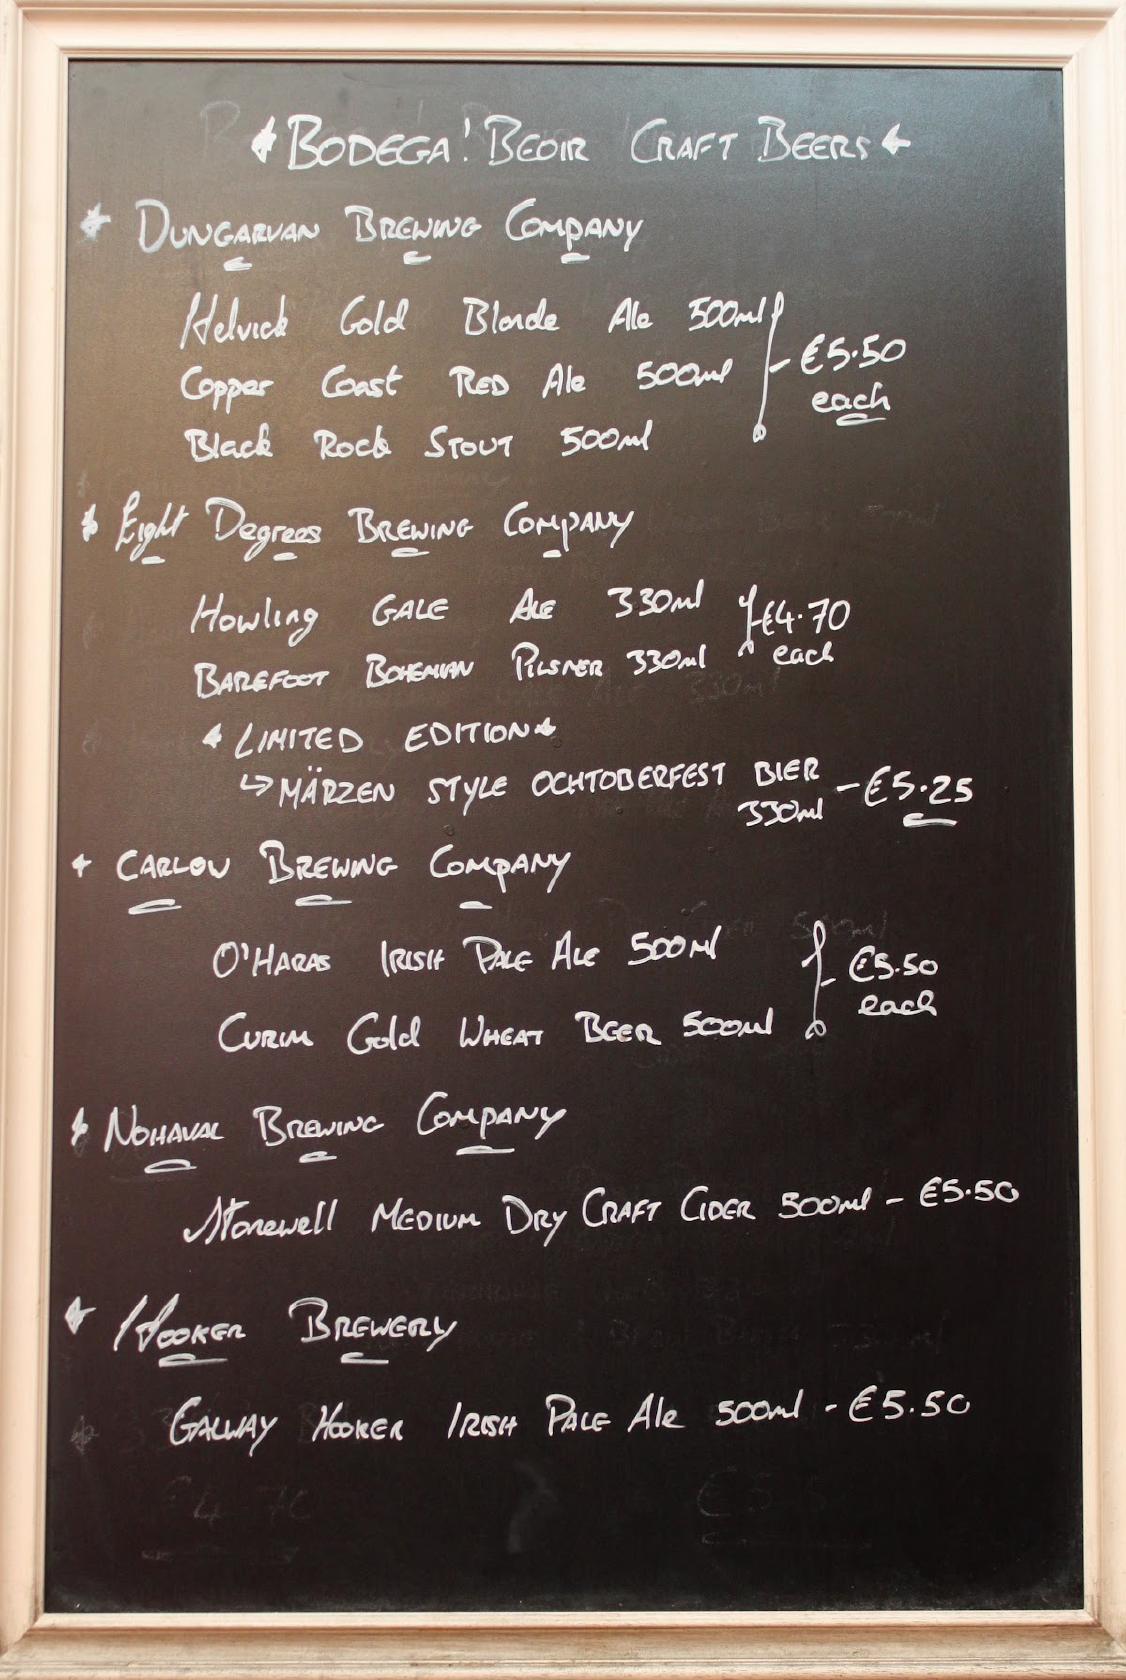 BODEGA! BEOIR CRAFT BEERS
DUNGARVAN BREWING COMPANY
Helvick Gold Blonde Ale 500ml
Copper Coast RED Ale 500ml
Black Rock STOUT 500ml
€5.50
each
Eight Degrees BREWING COMPANY
Howling GALE ALE 330ml
BAREFOOT BOHEMIAN PILSNER 330ml
€4.70
each
LIMITED EDITION
MÄRZEN STYLE OCHTOBERFEST BIER
330ml - €5.25
CARLOW BREWING COMPANY
O'HARAS IRISH PALE ALE 500ml
CURIM Gold WHEAT BEER 500ml
€5.50
each
NOHAVAL BREWING COMPANY
Stonewell MEDIUM DRY CRAFT CIDER 500ml - €5.50
HOOKER BREWERY
GALWAY HOOKER IRISH PALE Ale 500ml - €5.50